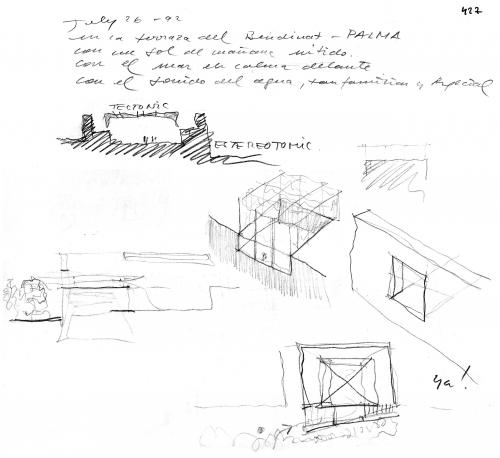 427
July 26 - 92
en la terraza del Bendinat - PALMA
con un sol de mañana nítido.
con el mar en calma delante
con el sonido del agua, tan familiar y especial
TECTONIC
ESTEREOTOMIC.
ya!